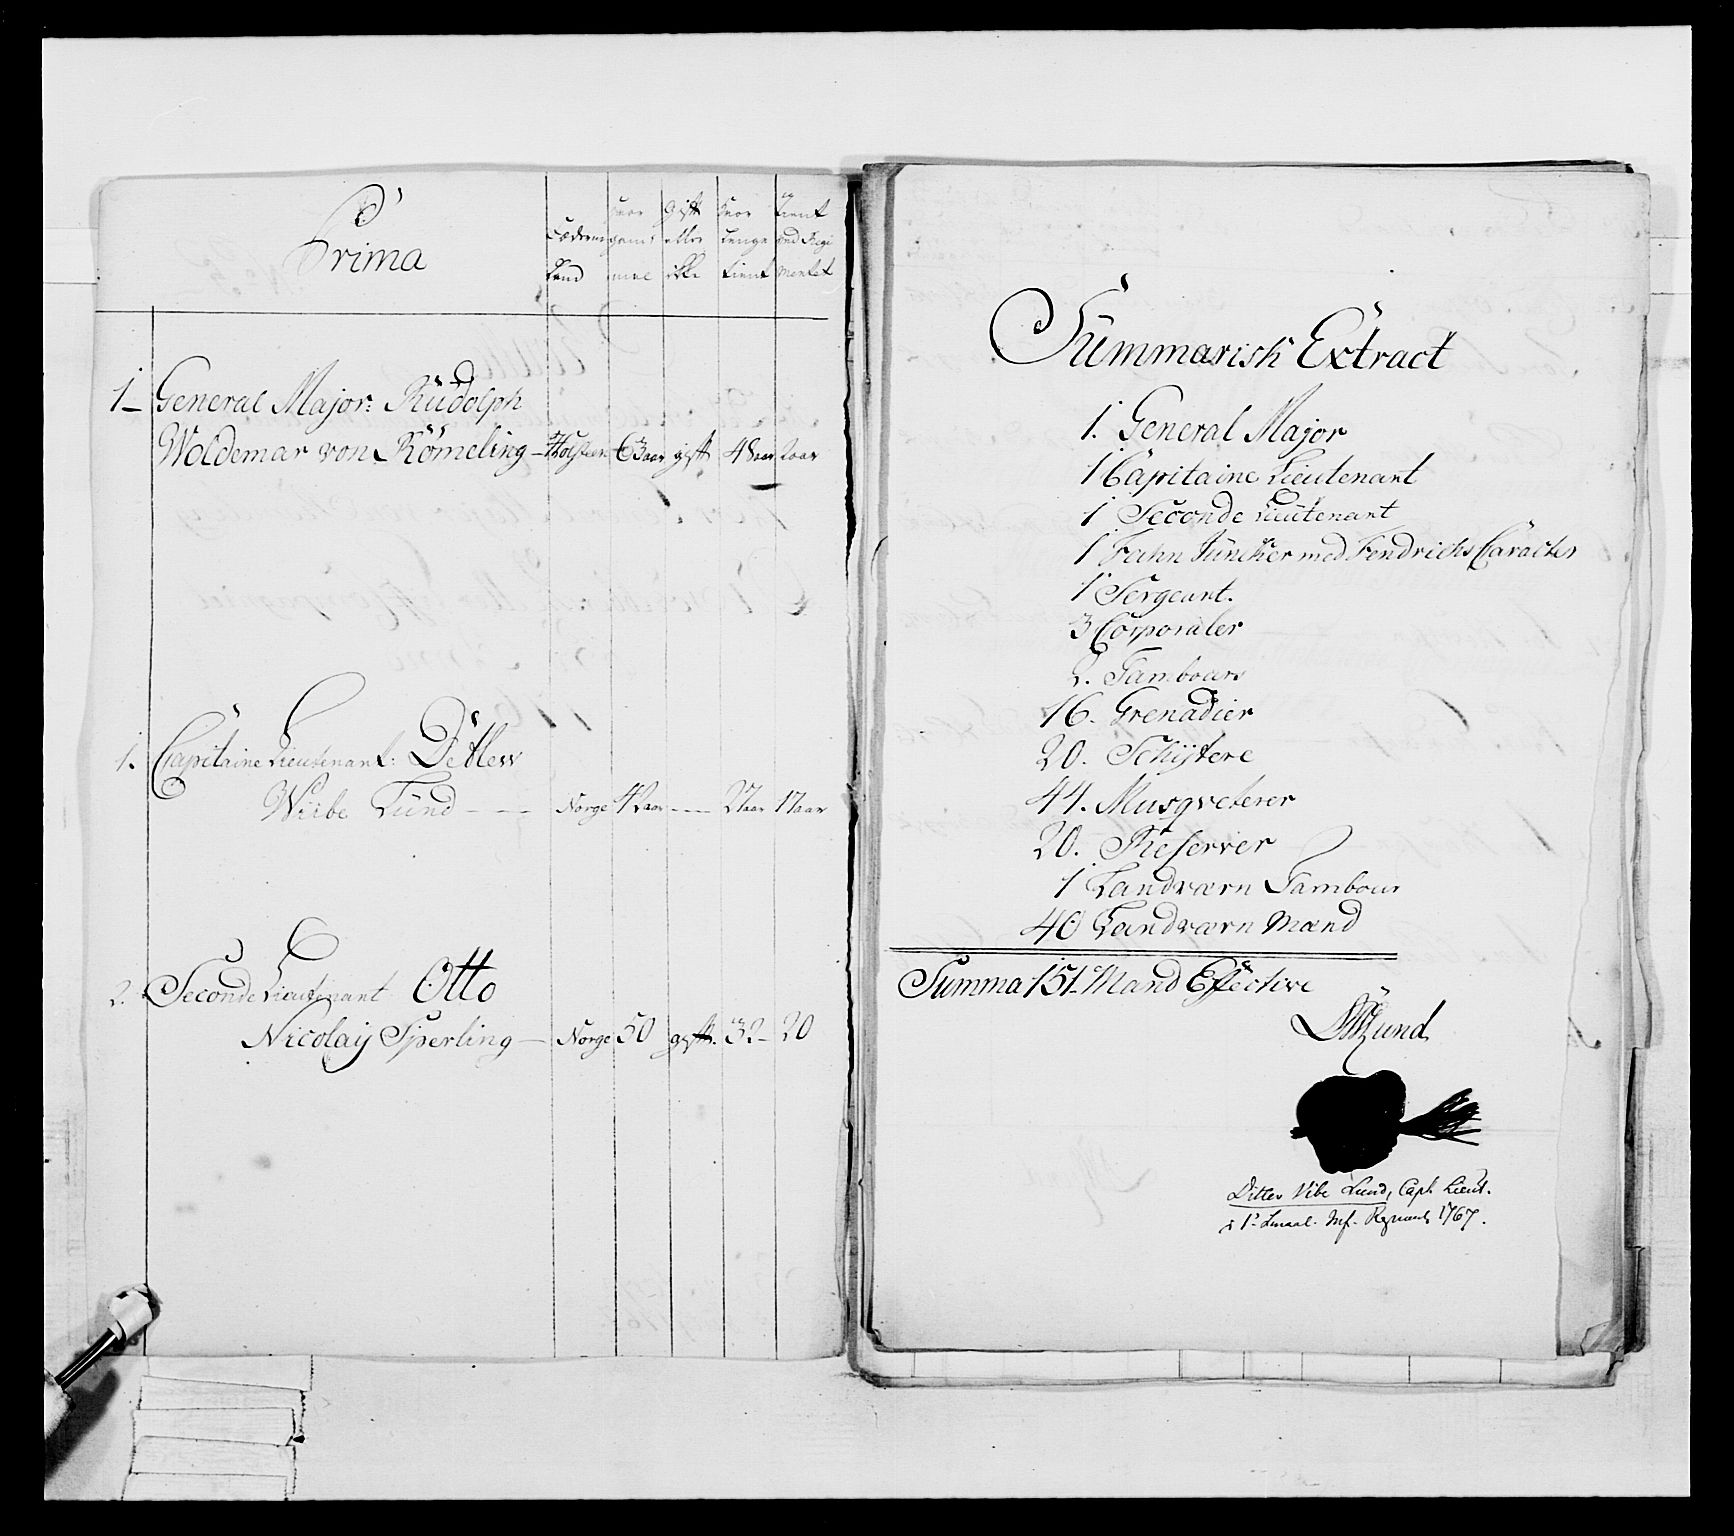 Prima
Födene Land
hvor gaml
gift eller ikke
hvor lenge tient
tient ved Regimentet
1 General Major: Rudolph
Woldemar von Römeling - Holsteen 63 aar gift 48 aar 2 aar
1. Capitaine Lieutenant: Detlew
Wiibe Lund - - - Norge 42 aar - - - 27 aar 17 aar
2. Seconde Lieutenant Otto
Nicolaij Sperling - Norge 50 gift. 32 - 20
Summarisk Extract
1. General Major
1 Capitaine Lieutenant
1 Seconde Lieutenant
1 Fahn Juncker med Fendrichs Caracter
1 Sergeant.
3 Corporaler
2. Tambours
16. Grenadier
20. Schÿtere
44. Musqveterer
20. Reserver
1 Landværn Tambour
40 Landværn Mænd
Summa 151 Mand Effective
DWLund
Ditlev Vibe Lund, Capt. Lieut.
i 1. Smaal. Inf. Regiment 1767.